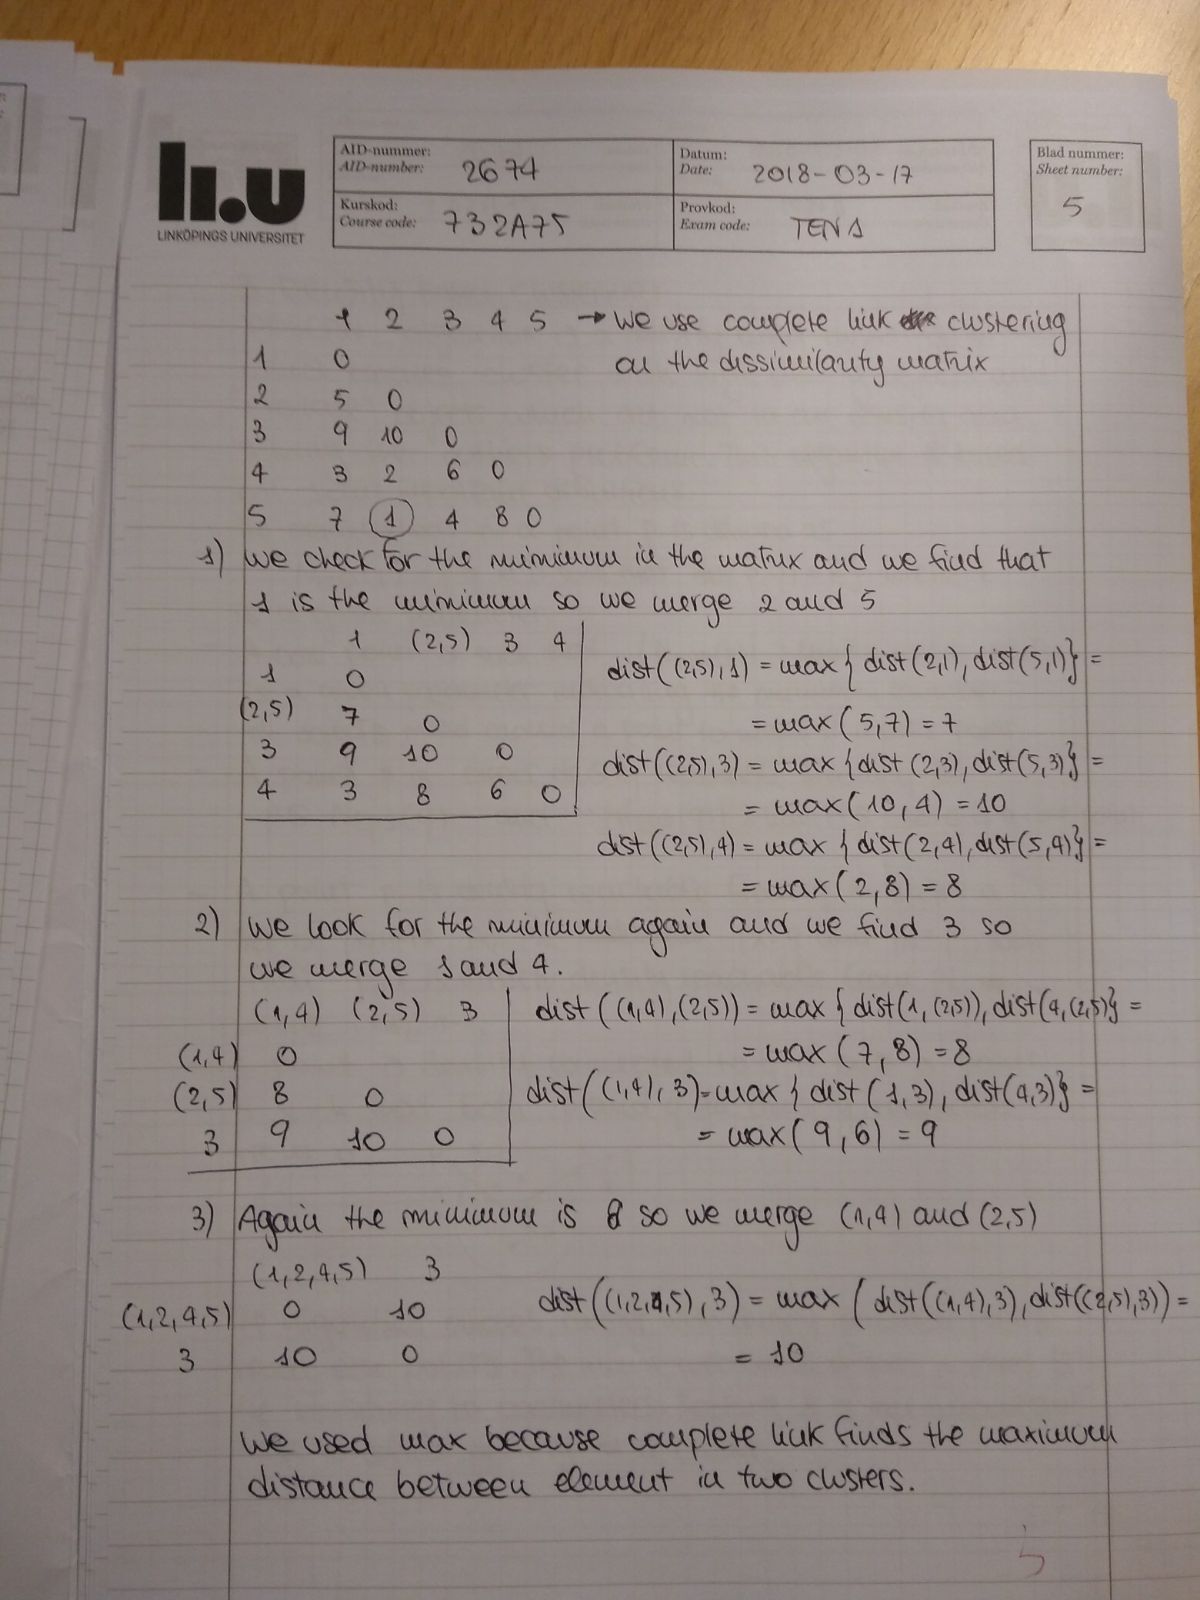 li.u
LINKÖPINGS UNIVERSITET
AID-nummer:
AID-number: 2674
Datum:
Date: 2018-03-17
Blad nummer:
Sheet number:
5
Kurskod:
Course code: 732A75
Provkod:
Exam code: TEN1
1 2 3 4 5 → We use complete link clustering
1 0 on the dissimilarity matrix
2 5 0
3 9 10 0
4 3 2 6 0
5 7 1 4 8 0
1) We check for the minimum in the matrix and we find that
1 is the minimum so we merge 2 and 5
1 (2,5) 3 4
1 0 dist((2,5),1) = max{dist(2,1), dist(5,1)} =
(2,5) 7 0 = max(5,7) = 7
3 9 10 0 dist((2,5),3) = max{dist(2,3), dist(5,3)} =
4 3 8 6 0 = max(10,4) = 10
dist((2,5),4) = max{dist(2,4), dist(5,4)} =
= max(2,8) = 8
2) We look for the minimum again and we find 3 so
we merge 1 and 4.
(1,4) (2,5) 3 dist((1,4),(2,5)) = max{dist(1,(2,5)), dist(4,(2,5)} =
(1,4) 0 = max(7,8) = 8
(2,5) 8 0 dist((1,4),3) = max{dist(1,3), dist(4,3)} =
3 9 10 0 = max(9,6) = 9
3) Again the minimum is 8 so we merge (1,4) and (2,5)
(1,2,4,5) 3
(1,2,4,5) 0 10 dist((1,2,4,5),3) = max(dist((1,4),3), dist((2,5),3)) =
3 10 0 = 10
We used max because complete link finds the maximum
distance between element in two clusters.
5